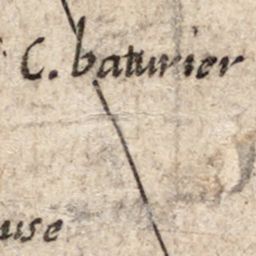 C. baturier
use